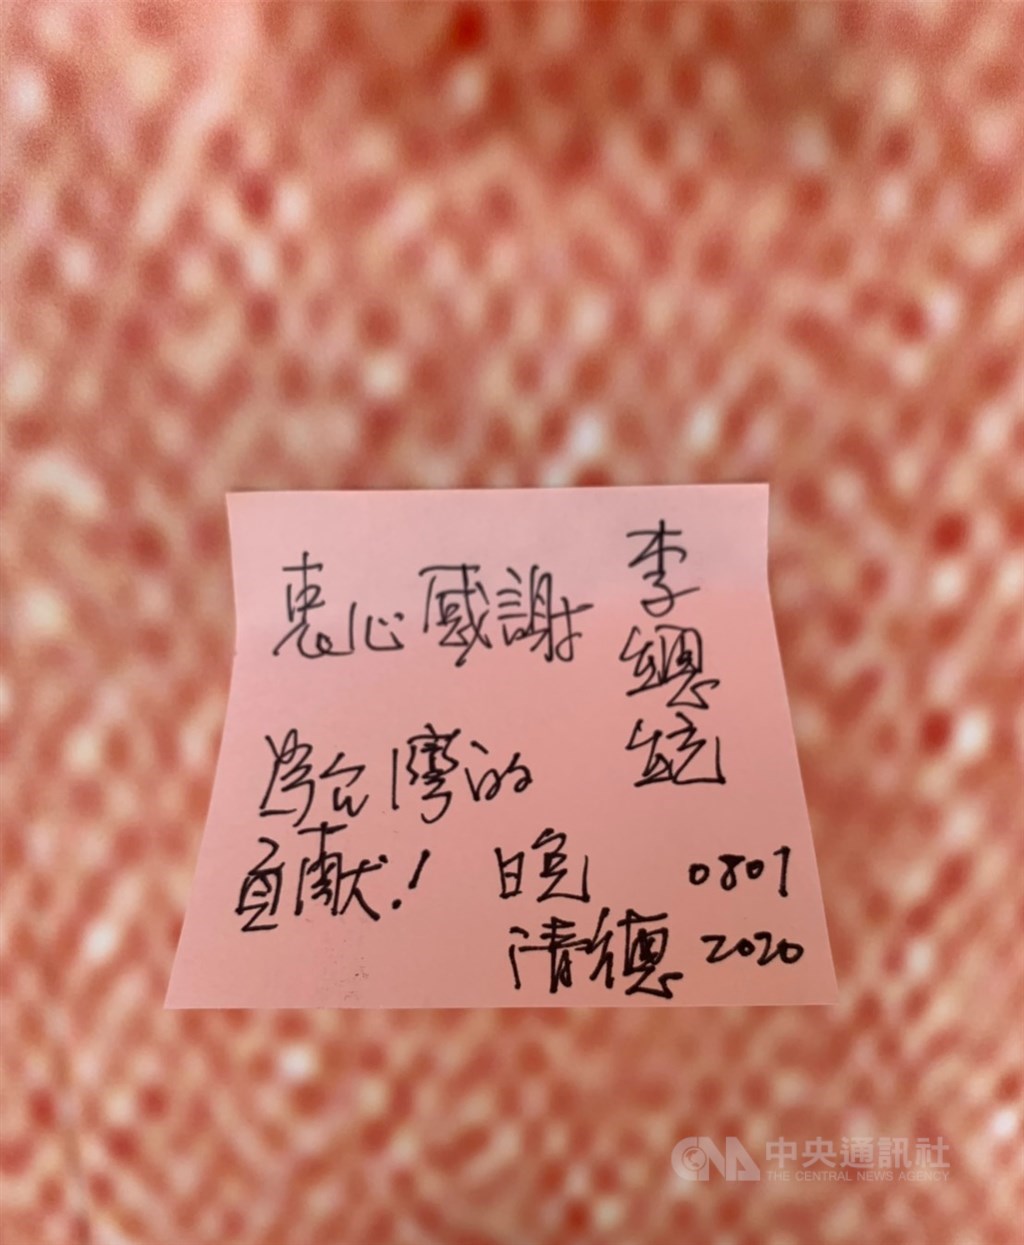 衷心感謝
李總統
為台灣的
貢獻！
晚
清德
0801
2020
CNA 中央通訊社
THE CENTRAL NEWS AGENCY